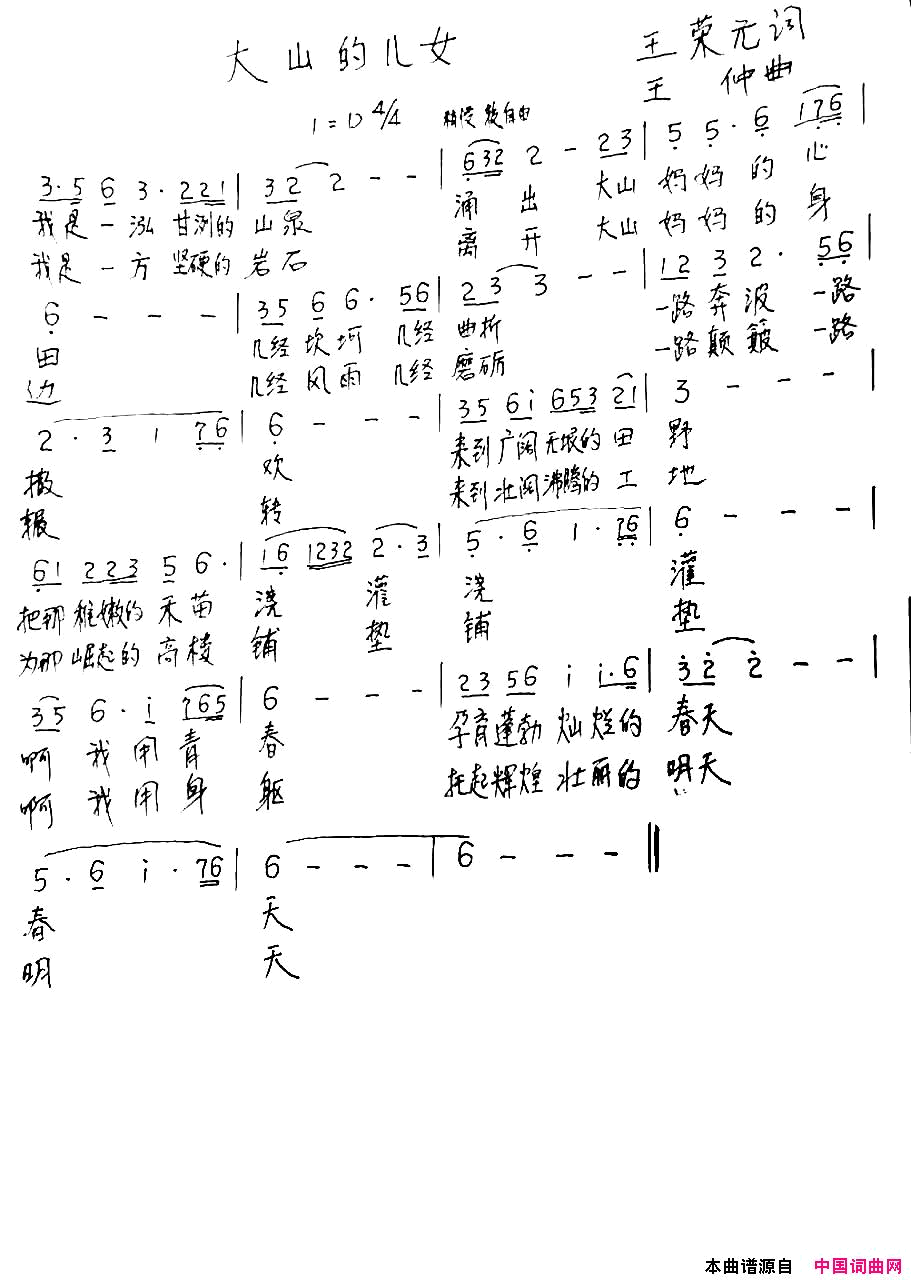 大山的儿女
王荣元词
王 仲曲
1=D 4/4 稍慢 较自由
3·5 6 3·221 | 32 2 - - | 632 2 - 23 | 5 5· 6 176 |
我是一泓甘洌的山泉 涌出 大山妈妈的心
我是一方坚硬的岩石 离开 大山妈妈的身
6 - - - | 35 6 6· 56 | 23 3 - - | 12 3 2· 56 |
田 几经坎坷几经曲折 一路奔波一路
边 几经风雨几经磨砺 一路颠簸一路
2·3 1 76 | 6 - - - | 35 6i 653 21 | 3 - - - |
撒 欢 来到广阔无垠的田野
辗 转 来到壮阔沸腾的工地
61 223 5 6· | 16 1232 2·3 | 5·6 1·76 | 6 - - - |
把那稚嫩的禾苗浇灌浇灌
为那崛起的高楼铺垫铺垫
35 6·i 765 | 6 - - - | 23 56 i i·6 | 3̇2̇ 2̇ - - |
啊我用青春 孕育蓬勃灿烂的春天
啊我用身躯 托起辉煌壮丽的明天
5·6 i·76 | 6 - - - | 6 - - - ‖
春 天
明 天
本曲谱源自 中国词曲网